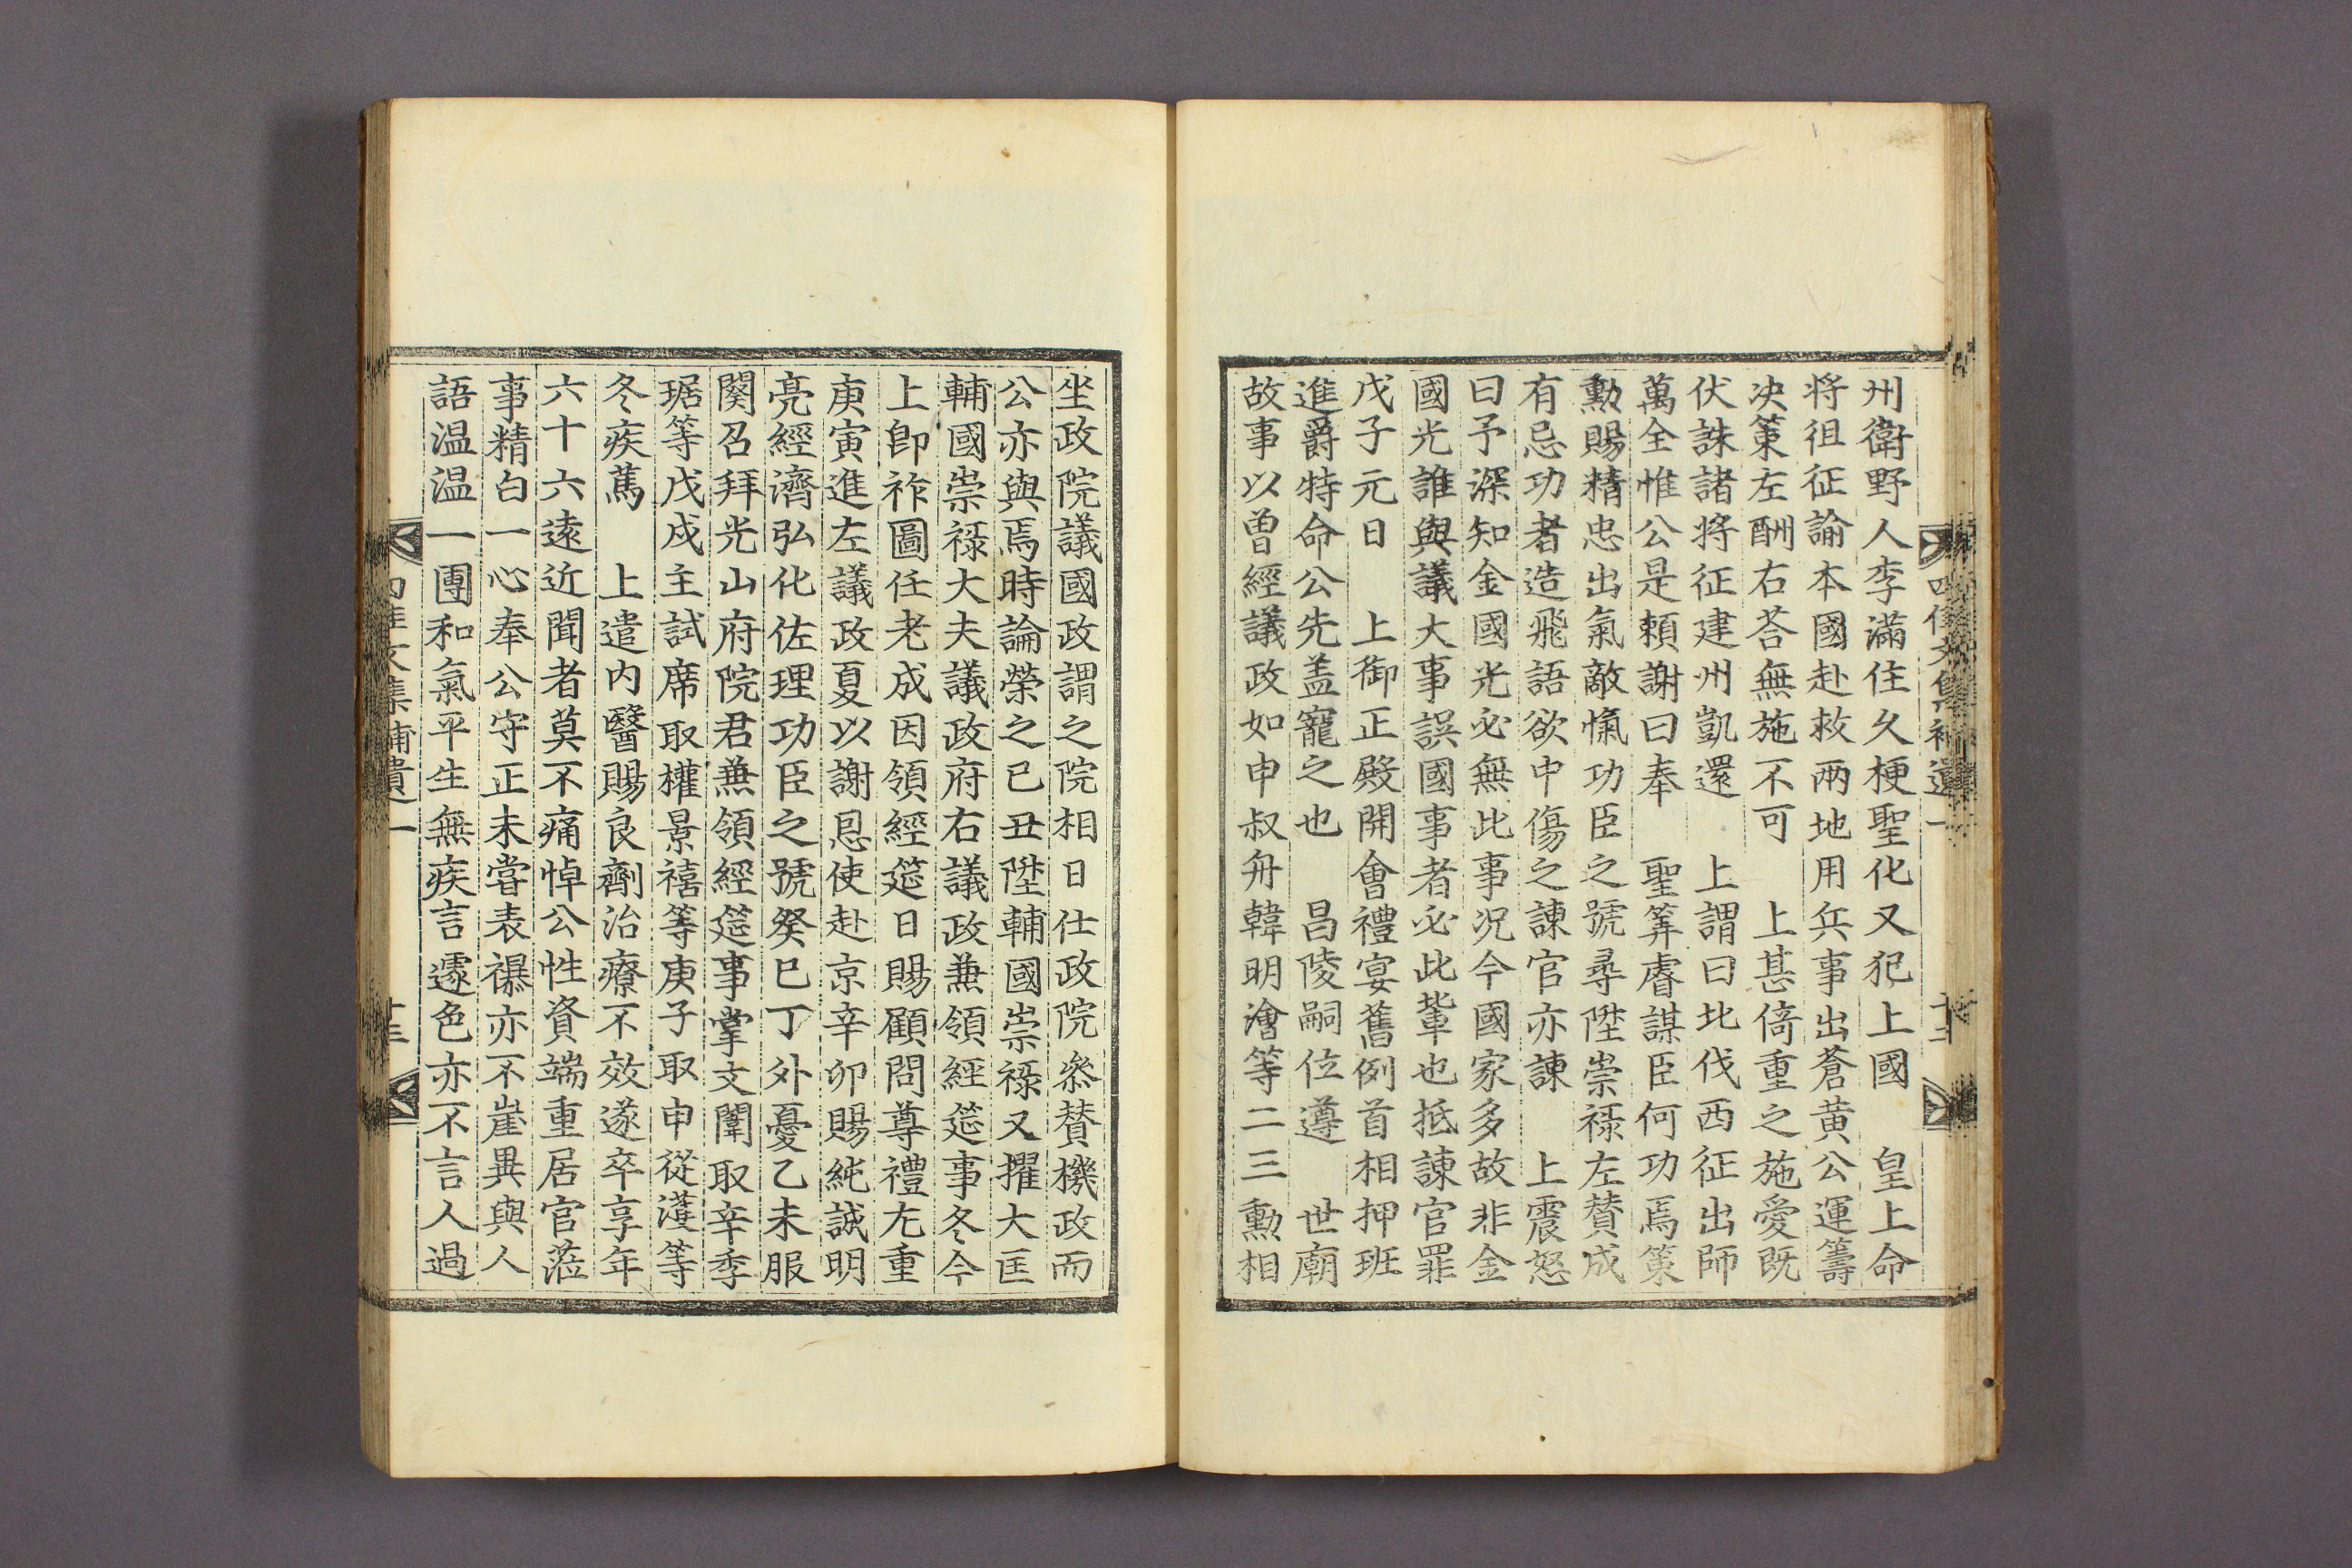 州衛野人李滿住久梗聖化又犯上國　皇上命
將徂征諭本國赴救兩地用兵事出蒼黃公運籌
决策左酬右荅無施不可　上甚倚重之施愛旣
伏誅諸將征建州凱還　上謂曰北伐西征出師
萬全惟公是賴謝曰奉　聖筭睿謀臣何功焉策
勳賜精忠出氣敵愾功臣之號尋陞崇祿左贊成
有忌功者造飛語欲中傷之諫官亦諫　上震怒
曰予深知金國光必無此事况今國家多故非金
國光誰與議大事誤國事者必此輩也抵諫官罪
戊子元日　上御正殿開會禮宴舊例首相押班
進爵特命公先盖寵之也　昌陵嗣位遵　世廟
故事以曾經議政如申叔舟韓明澮等二三勳相
坐政院議國政謂之院相日仕政院叅賛機政而
公亦與焉時論榮之己丑陞輔國崇祿又擢大匡
輔國崇祿大夫議政府右議政兼領經筵事冬今
上卽祚圖任老成因領經筵日賜顧問尊禮尢重
庚寅進左議政夏以謝恩使赴京辛卯賜純誠明
亮經濟弘化佐理功臣之號癸巳丁外憂乙未服
闋召拜光山府院君兼領經筵事掌文闈取辛季
琚等戊戌主試席取權景禧等庚子取申從濩等
冬疾篤　上遣內醫賜良劑治療不效遂卒享年
六十六遠近聞者莫不痛悼公性資端重居官莅
事精白一心奉公守正未嘗表襮亦不崖異與人
語温温一團和氣平生無疾言遽色亦不言人過
四佳文集補遺一